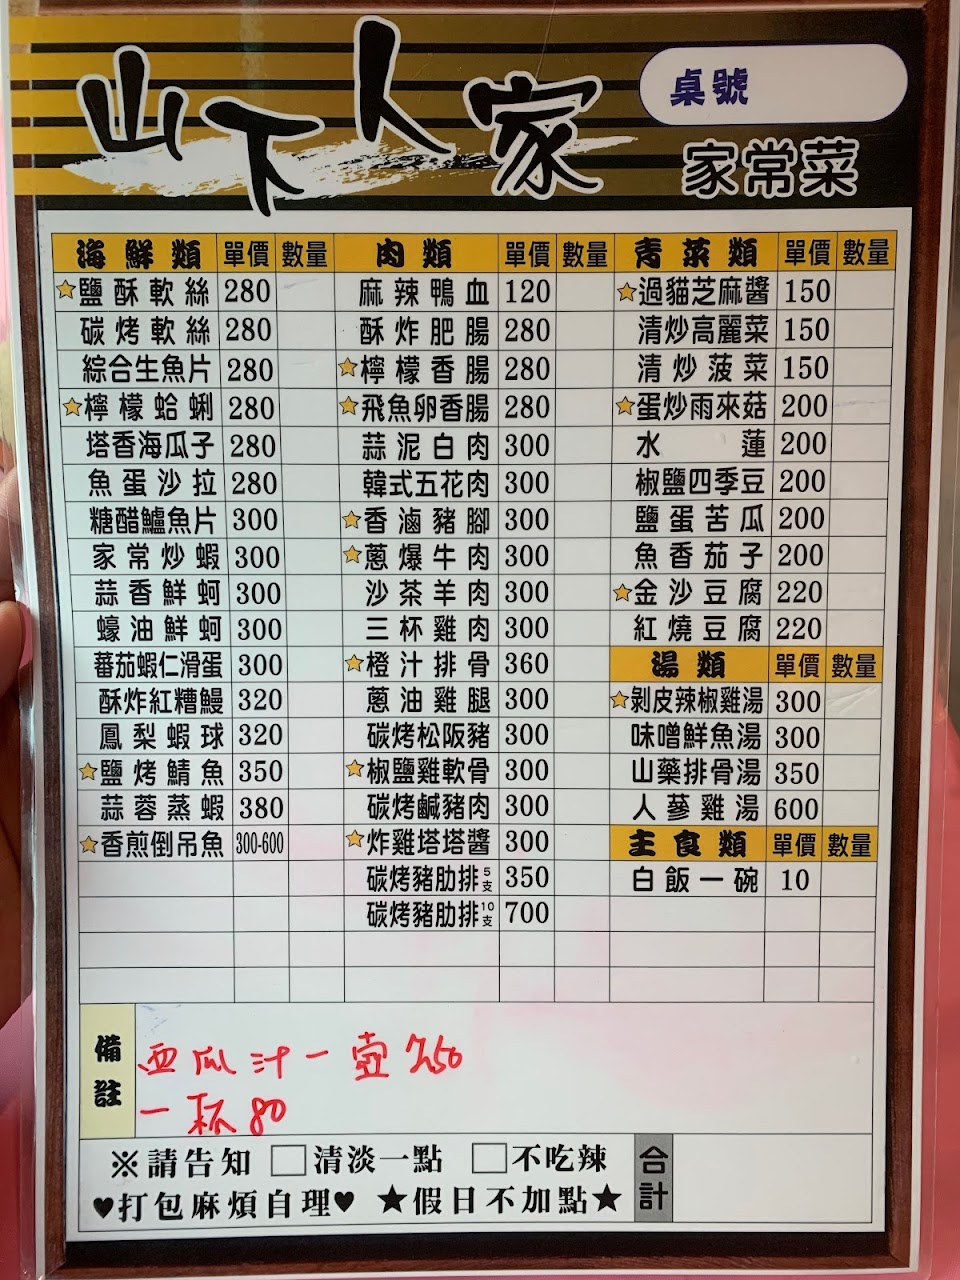 山下人家
桌號
家常菜
海鮮類 單價 數量 肉類 單價 數量 青菜類 單價 數量
☆鹽酥軟絲 280 麻辣鴨血 120 ☆過貓芝麻醬 150
碳烤軟絲 280 酥炸肥腸 280 清炒高麗菜 150
綜合生魚片 280 ☆檸檬香腸 280 清炒菠菜 150
☆檸檬蛤蜊 280 ☆飛魚卵香腸 280 ☆蛋炒雨來菇 200
塔香海瓜子 280 蒜泥白肉 300 水蓮 200
魚蛋沙拉 280 韓式五花肉 300 椒鹽四季豆 200
糖醋鱸魚片 300 ☆香滷豬腳 300 鹽蛋苦瓜 200
家常炒蝦 300 ☆蔥爆牛肉 300 魚香茄子 200
蒜香鮮蚵 300 沙茶羊肉 300 ☆金沙豆腐 220
蠔油鮮蚵 300 三杯雞肉 300 紅燒豆腐 220
蕃茄蝦仁滑蛋 300 ☆橙汁排骨 360 湯類 單價 數量
酥炸紅糟鰻 320 蔥油雞腿 300 ☆剝皮辣椒雞湯 300
鳳梨蝦球 320 碳烤松阪豬 300 味噌鮮魚湯 300
☆鹽烤鯖魚 350 ☆椒鹽雞軟骨 300 山藥排骨湯 350
蒜蓉蒸蝦 380 碳烤鹹豬肉 300 人蔘雞湯 600
☆香煎倒吊魚 300-600 ☆炸雞塔塔醬 300 主食類 單價 數量
碳烤豬肋排5支 350 白飯一碗 10
碳烤豬肋排10支 700
備註
西瓜汁一壺250
一杯80
※請告知 □清淡一點 □不吃辣 合計
♥打包麻煩自理♥ ★假日不加點★